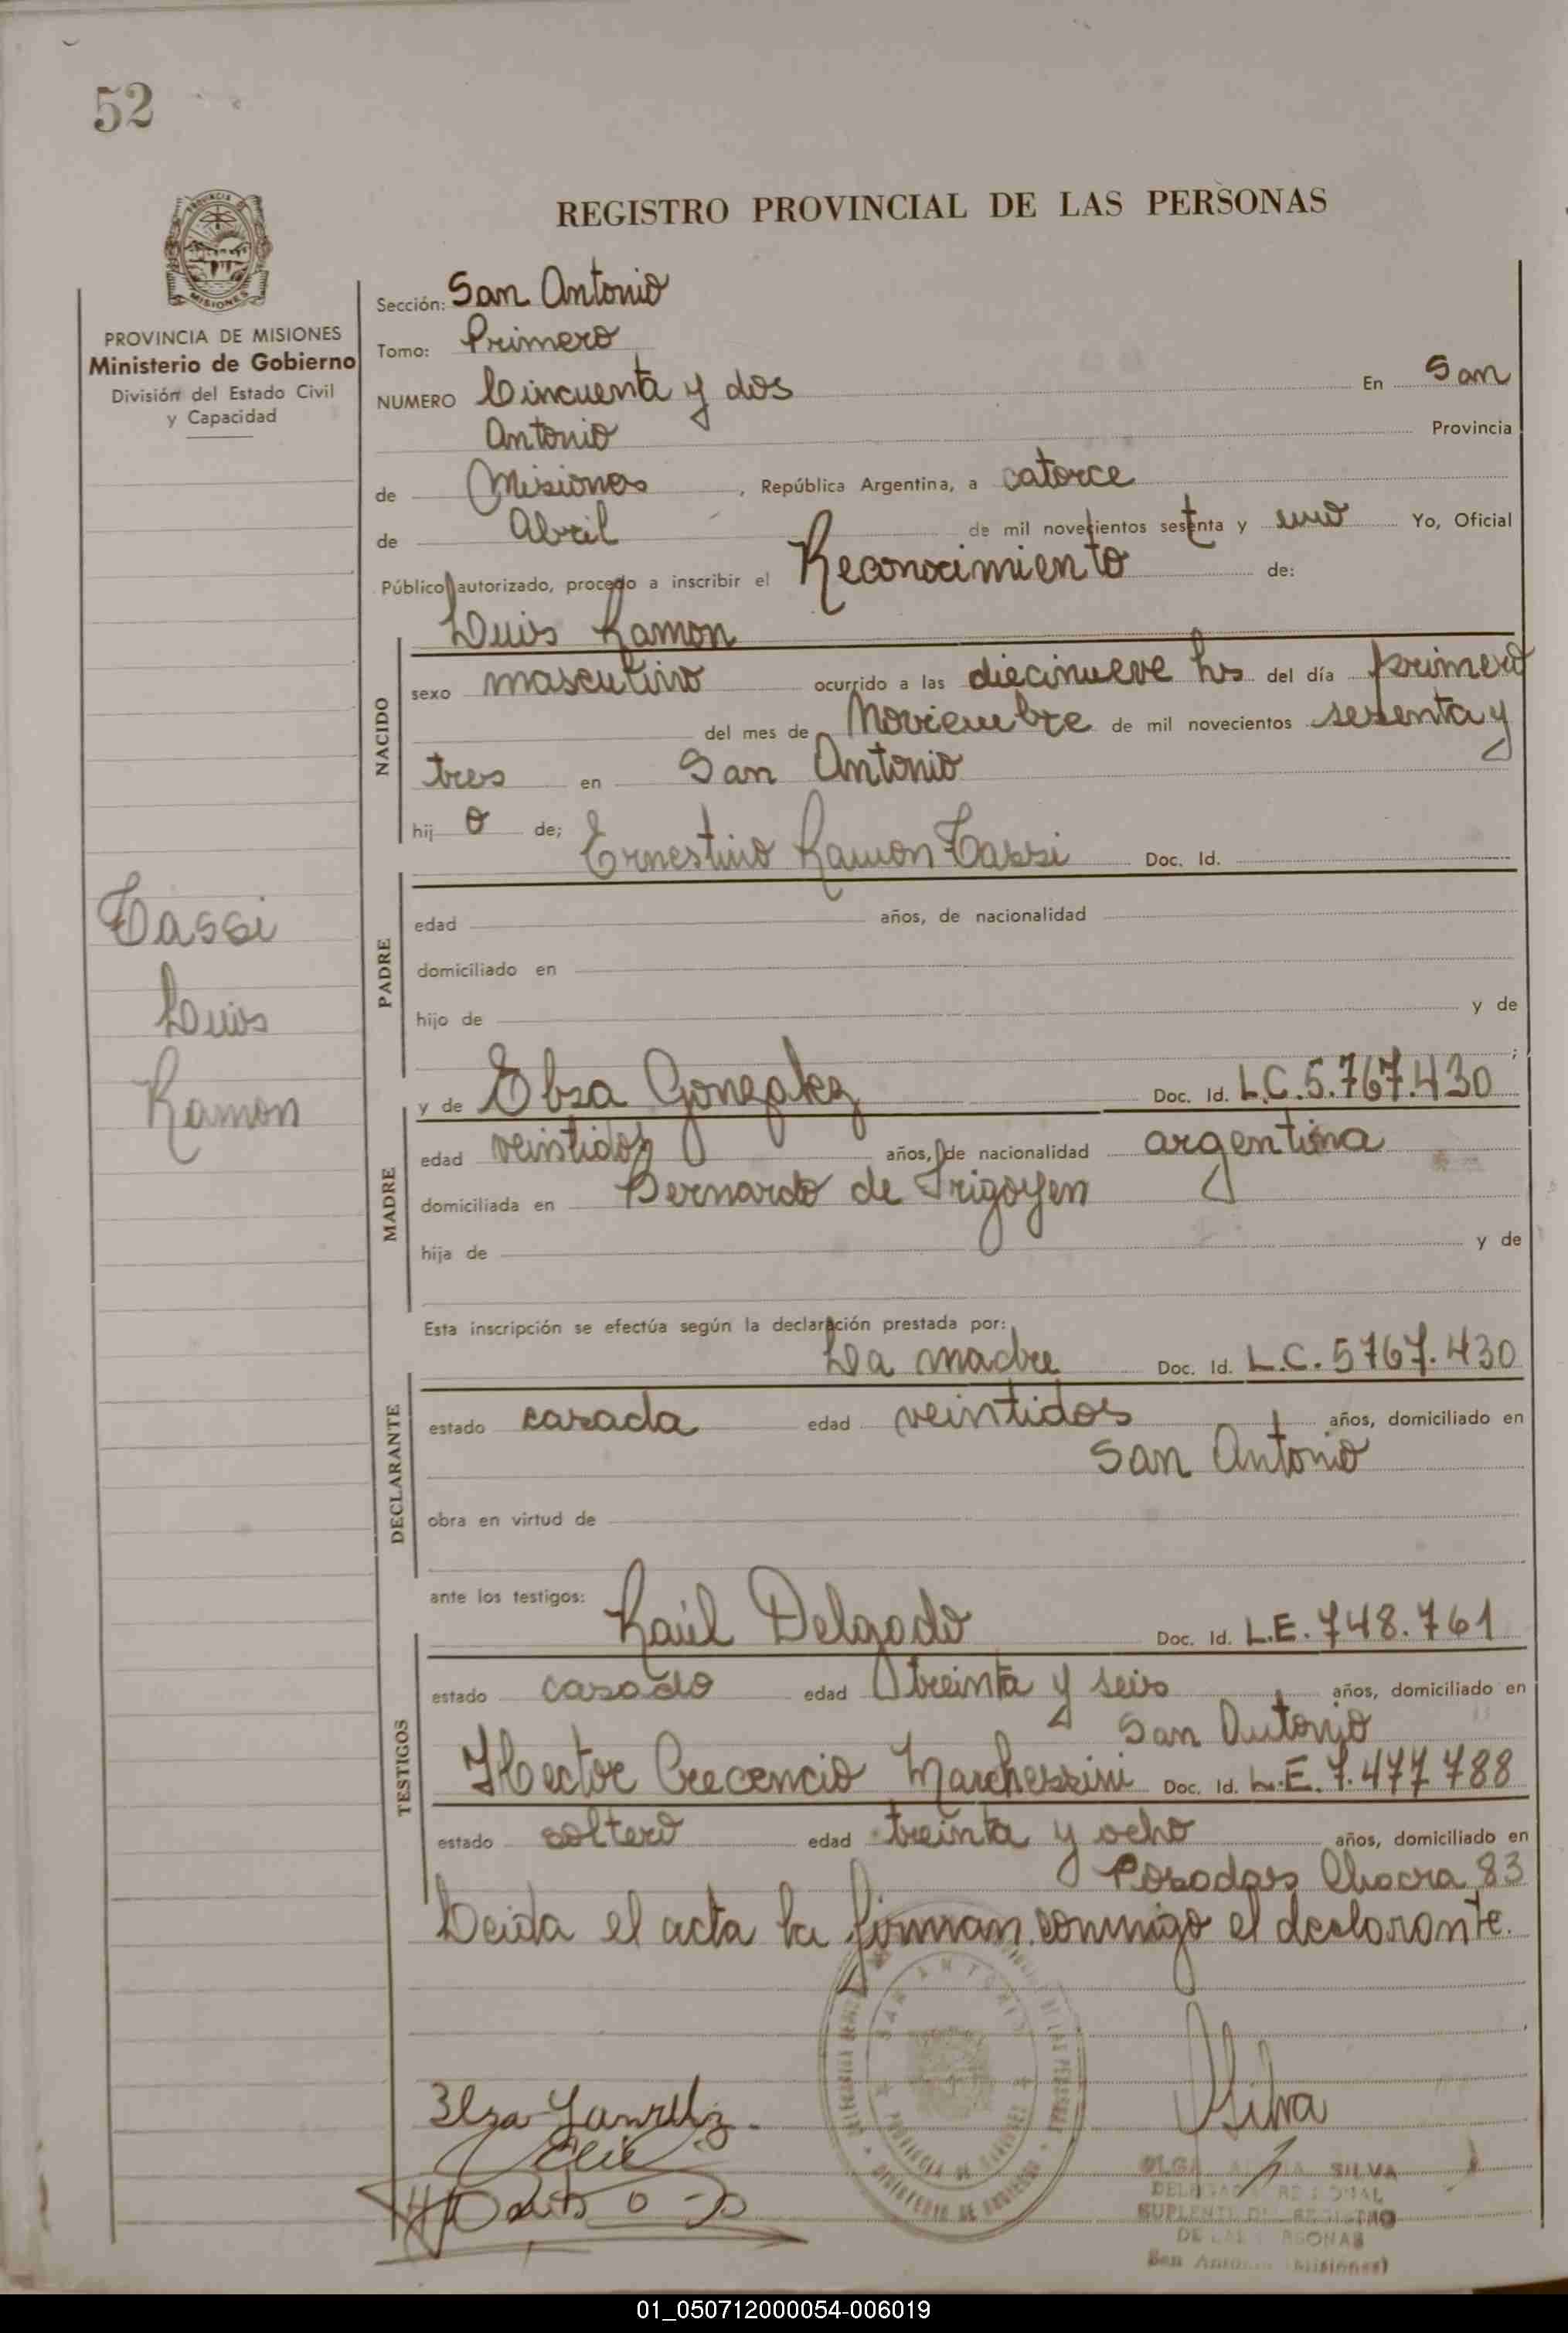 52
REGISTRO PROVINCIAL DE LAS PERSONAS
PROVINCIA DE MISIONES
Ministerio de Gobierno
División del Estado Civil
y Capacidad
Sección: San Antonio
Tomo: Primero
NUMERO Cincuenta y dos En San
Antonio Provincia
de Misiones, República Argentina, a catorce
de Abril de mil novecientos setenta y uno Yo, Oficial
Público autorizado, procedo a inscribir el Reconocimiento de:
Luis Ramon
NACIDO
sexo masculino ocurrido a las diecinueve hs del día primero
del mes de Noviembre de mil novecientos sesenta y
tres en San Antonio
hij o de; Ernestino Ramon Tassi Doc. Id.
Tassi
Luis
Ramon
PADRE
edad años, de nacionalidad
domiciliado en
hijo de y de
;
y de Elsa Gonzalez Doc. Id. L.C.5.767.430
MADRE
edad veintidos años, de nacionalidad argentina
domiciliada en Bernardo de Irigoyen
hija de y de
Esta inscripción se efectúa según la declaración prestada por:
La madre Doc. Id. L.C. 5767.430
DECLARANTE
estado casada edad veintidos años, domiciliado en
San Antonio
obra en virtud de
ante los testigos: Raúl Delgado Doc. Id. L.E. 748.761
TESTIGOS
estado casado edad treinta y seis años, domiciliado en
San Antonio
Hector Crecencio Marchessini Doc. Id. L.E. 7.477 788
estado soltero edad treinta y ocho años, domiciliado en
Posadas Chacra 83
Leida el acta la firman conmigo el declarante.
SAN ANTONIO
PROVINCIA DE MISIONES
MINISTERIO DE GOBIERNO
Silva
OLGA SILVA
DELEGADA REGIONAL
SUPLENTE DEL REGISTRO
DE LAS PERSONAS
San Antonio (Misiones)
01_050712000054-006019